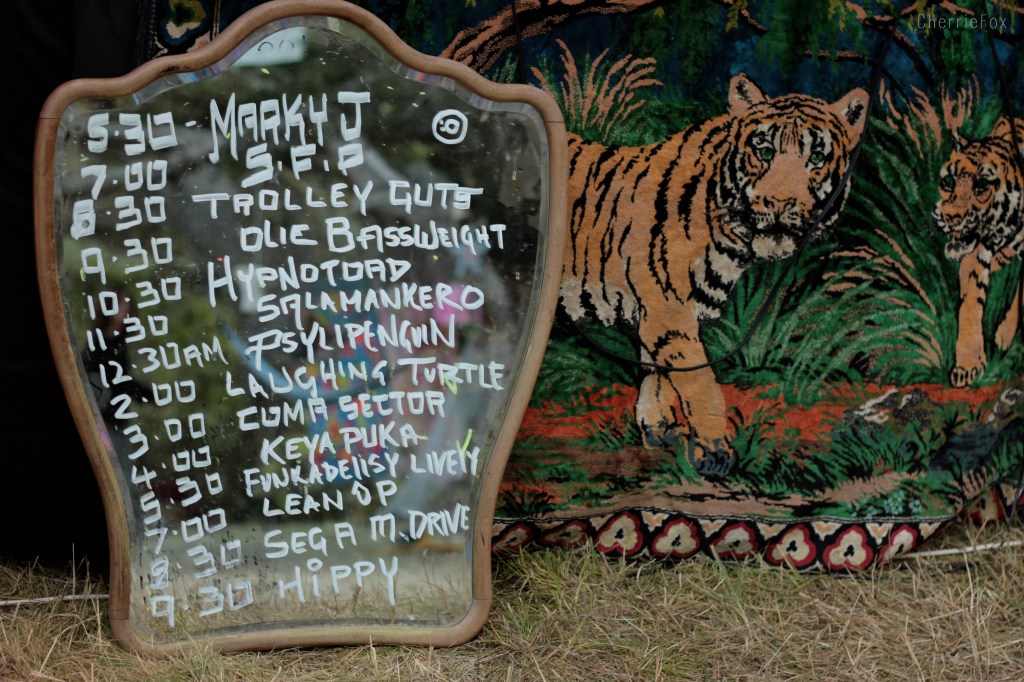 CherrieFox
5.30 - MARKY J
7.00 S.F.P
8.30 TROLLEY GUTS
9.30 OLIE BASSWEIGHT
10.30 HYPNOTOAD
11.30 SALAMANKERO
12.30AM PSYLIPENGUIN
2.00 LAUGHING TURTLE
3.00 COMA SECTOR
4.00 KEYAPUKA
5.30 LIVELY
7.00 LEAN UP
8.30 SEGA M. DRIVE
9.30 HIPPY